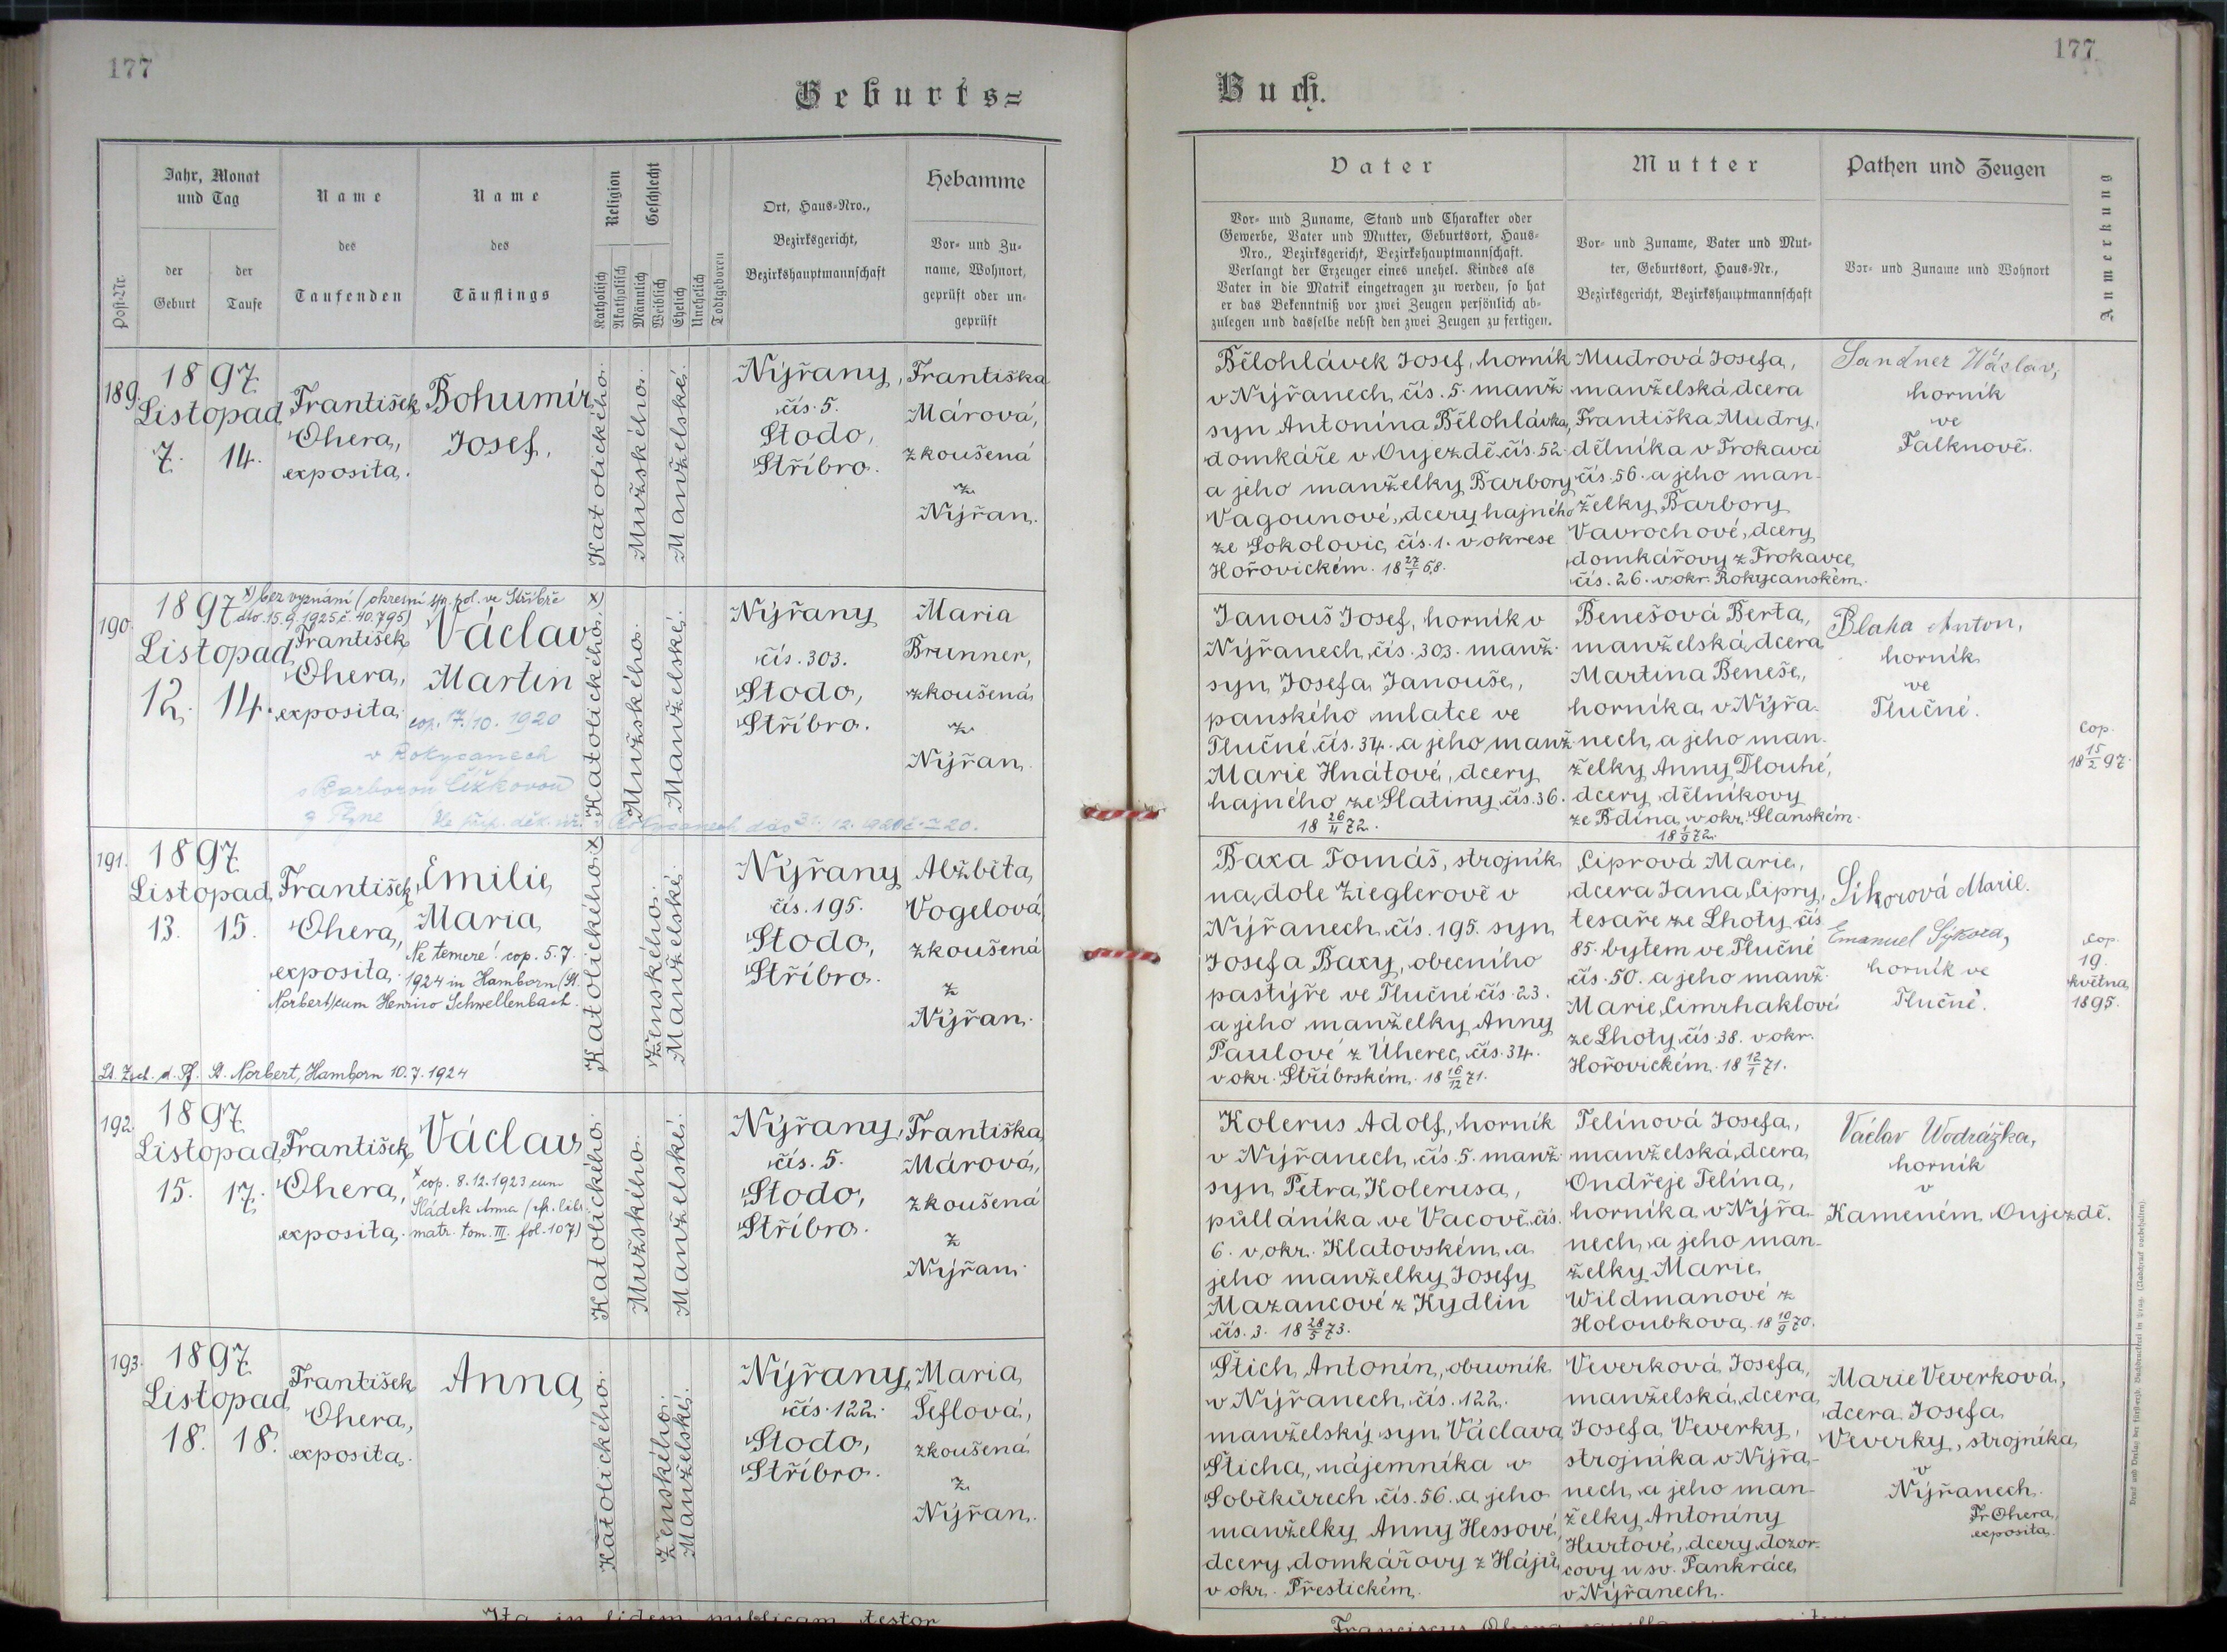 177
177
Geburts=
Buch.
Post-Nr.
Jahr, Monat
und Tag
der
Geburt
der
Taufe
Name
des
Taufenden
Name
des
Täuflings
Religion
Katholisch
Akatholisch
Geschlecht
Männlich
Weiblich
Ehelich
Unehelich
Todtgeboren
Ort, Haus-Nro.,
Bezirksgericht,
Bezirkshauptmannschaft
Hebamme
Vor- und Zu-
name, Wohnort,
geprüft oder un-
geprüft
Vater
Vor- und Zuname, Stand und Charakter oder
Gewerbe, Vater und Mutter, Geburtsort, Haus-
Nro., Bezirksgericht, Bezirkshauptmannschaft.
Verlangt der Erzeuger eines unehel. Kindes als
Vater in die Matrik eingetragen zu werden, so hat
er das Bekenntniß vor zwei Zeugen persönlich ab-
zulegen und dasselbe nebst den zwei Zeugen zu fertigen.
Mutter
Vor- und Zuname, Vater und Mut-
ter, Geburtsort, Haus-Nr.,
Bezirksgericht, Bezirkshauptmannschaft
Pathen und Zeugen
Vor- und Zuname und Wohnort
Anmerkung
189.
1897
Listopad
7. 14.
František
Ohera,
exposita.
Bohumír
Josef.
Katolického.
Mužského.
Manželské.
Nýřany,
čís. 5.
Stodo,
Stříbro.
Františka
Márová,
zkoušená
z
Nýřan.
Bělohlávek Josef, horník
v Nýřanech, čís. 5. manž.
syn Antonína Bělohlávka,
domkáře v Oujezdě čís. 52.
a jeho manželky Barbory
Vagounové, dcery hajného
ze Sokolovic, čís. 1. v okrese
Hořovickém. 18 27/1 68.
Mudrová Josefa,
manželská dcera
Františka Mudry,
dělníka v Trokavci
čís. 56. a jeho man-
želky Barbory
Vavrochové, dcery
domkářovy z Trokavce
čís. 26. v okr. Rokycanském.
Sandner Václav,
horník
ve
Falknově.
190.
1897
x) bez vyznání (okresní spr. pol. ve Stříbře
dto. 15. 9. 1925 č. 40.795)
Listopad
12. 14.
František
Ohera,
exposita.
Václav
Martin
cop. 17./10. 1920
v Rokycanech
s Barborou Čížkovou
z Plzne
Rokycanech
Katolického. x)
Mužského.
Manželské.
Nýřany
čís. 303.
Stodo,
Stříbro.
Maria
Brunner,
zkoušená
z
Nýřan.
Janouš Josef, horník v
Nýřanech, čís. 303. manž.
syn Josefa Janouše,
panského mlatce ve
Tlučné čís. 34. a jeho manž.
Marie Hnátové, dcery
hajného ze Slatiny čís. 36.
18 26/4 72.
Benešová Berta,
manželská dcera
Martina Beneše,
horníka v Nýřa-
nech, a jeho man-
želky Anny Dlouhé,
dcery dělníkovy
ze Bdína, v okr. Slanském.
18 1/9 72.
Blaha Anton,
horník
ve
Tlučné.
cop.
18 15/2 97.
191.
1897
Listopad
13. 15.
František
Ohera,
exposita.
Emilie
Maria
Ne temere! cop. 5. 7.
1924 in Hamborn (St.
Norbert) cum Henrico Schwellenbach.
St. Norbert, Hamborn 10. 7. 1924
Katolického. x
Ženského.
Manželské.
Nýřany
čís. 195.
Stodo,
Stříbro.
Alžběta
Vogelová,
zkoušená
z
Nýřan.
Baxa Tomáš, strojník
na dole Zieglerově v
Nýřanech, čís. 195. syn
Josefa Baxy, obecního
pastýře ve Tlučné čís. 23.
a jeho manželky Anny
Paulové z Úherec, čís. 34.
v okr. Stříbrském. 18 16/12 71.
Ciprová Marie,
dcera Jana Cipry,
tesaře ze Lhoty čís.
85. bytem ve Tlučné
čís. 50. a jeho manž.
Marie Cimrhaklové
ze Lhoty čís. 38. v okr.
Hořovickém. 18 12/1 71.
Sikorová Marie.
Emanuel Sýkora,
horník ve
Tlučné.
cop.
19.
května
1895.
192.
1897
Listopad
15. 17.
František
Ohera,
exposita.
Václav
x cop. 8. 12. 1923 cum
Sládek Anna (
matr. tom. III. fol. 107)
Katolického.
Mužského.
Manželské.
Nýřany,
čís. 5.
Stodo,
Stříbro.
Františka
Márová,
zkoušená
z
Nýřan.
Kolerus Adolf, horník
v Nýřanech, čís. 5. manž.
syn Petra Kolerusa,
půlláníka ve Vacově, čís.
6. v okr. Klatovském, a
jeho manželky Josefy
Mazancové z Kydlin
čís. 3. 18 28/5 73.
Telínová Josefa,
manželská dcera
Ondřeje Telína,
horníka v Nýřa-
nech, a jeho man-
želky Marie
Wildmanové z
Holoubkova. 18 10/9 70.
Václav Wodrážka,
horník
v
Kameném Oujezdě.
193.
1897
Listopad
18. 18.
František
Ohera,
exposita.
Anna
Katolického.
Ženského.
Manželské.
Nýřany,
čís. 122.
Stodo,
Stříbro.
Maria
Šeflová,
zkoušená
z
Nýřan.
Štich Antonín, obuvník
v Nýřanech, čís. 122.
manželský syn Václava
Šticha, nájemníka v
Soběkůrech čís. 56. a jeho
manželky Anny Hessové,
dcery domkářovy z Hájů
v okr. Přestickém.
Veverková Josefa,
manželská dcera
Josefa Veverky,
strojníka v Nýřa-
nech, a jeho man-
želky Antoníny
Hurtové, dcery dozor-
covy u sv. Pankráce
v Nýřanech.
Marie Veverková,
dcera Josefa
Veverky, strojníka
v
Nýřanech.
Fr Ohera,
exposita.
Ita in fidem publicam testor
Franciscus Ohera